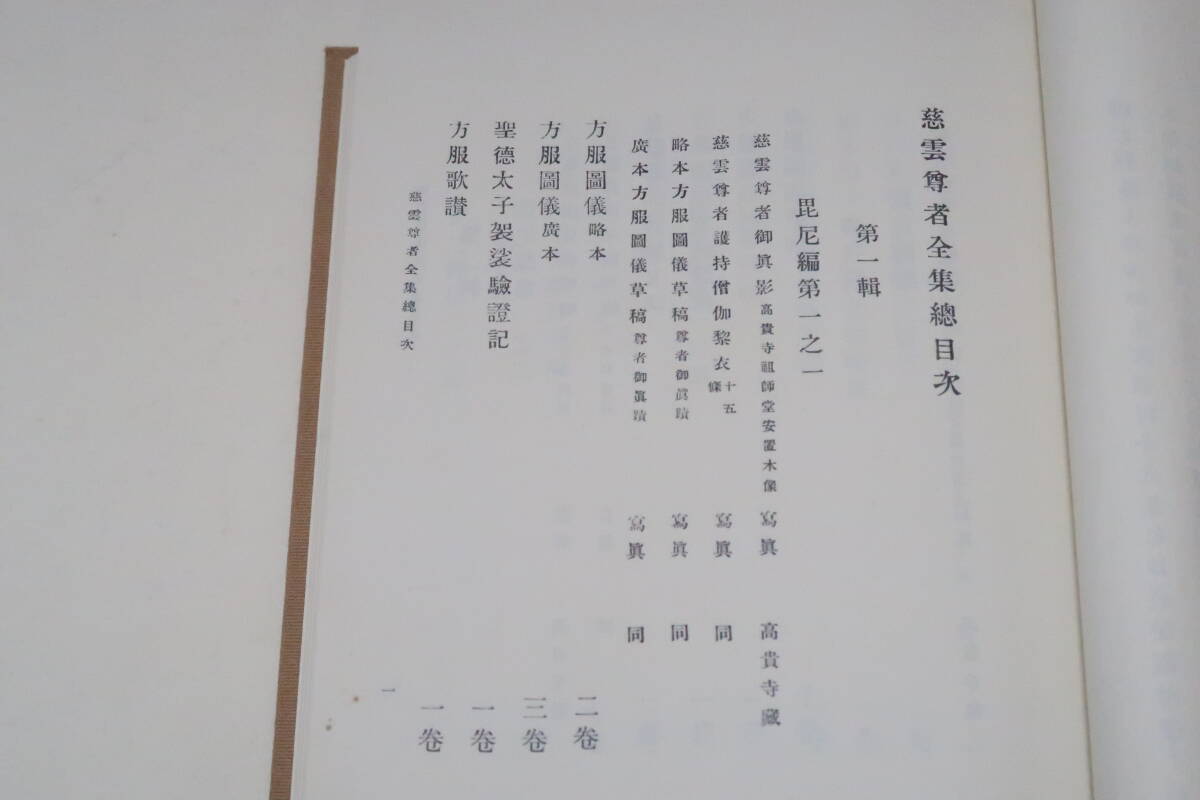 慈雲尊者全集總目次
第一輯
毘尼編第一之一
慈雲尊者御眞影高貴寺祖師堂安置木像 寫眞 高貴寺藏
慈雲尊者護持僧伽黎衣十五條 寫眞 同
略本方服圖儀草稿尊者御眞蹟 寫眞 同
廣本方服圖儀草稿尊者御眞蹟 寫眞 同
方服圖儀略本 二卷
方服圖儀廣本 三卷
聖德太子袈裟驗證記 一卷
方服歌讃 一卷
慈雲尊者全集總目次 一